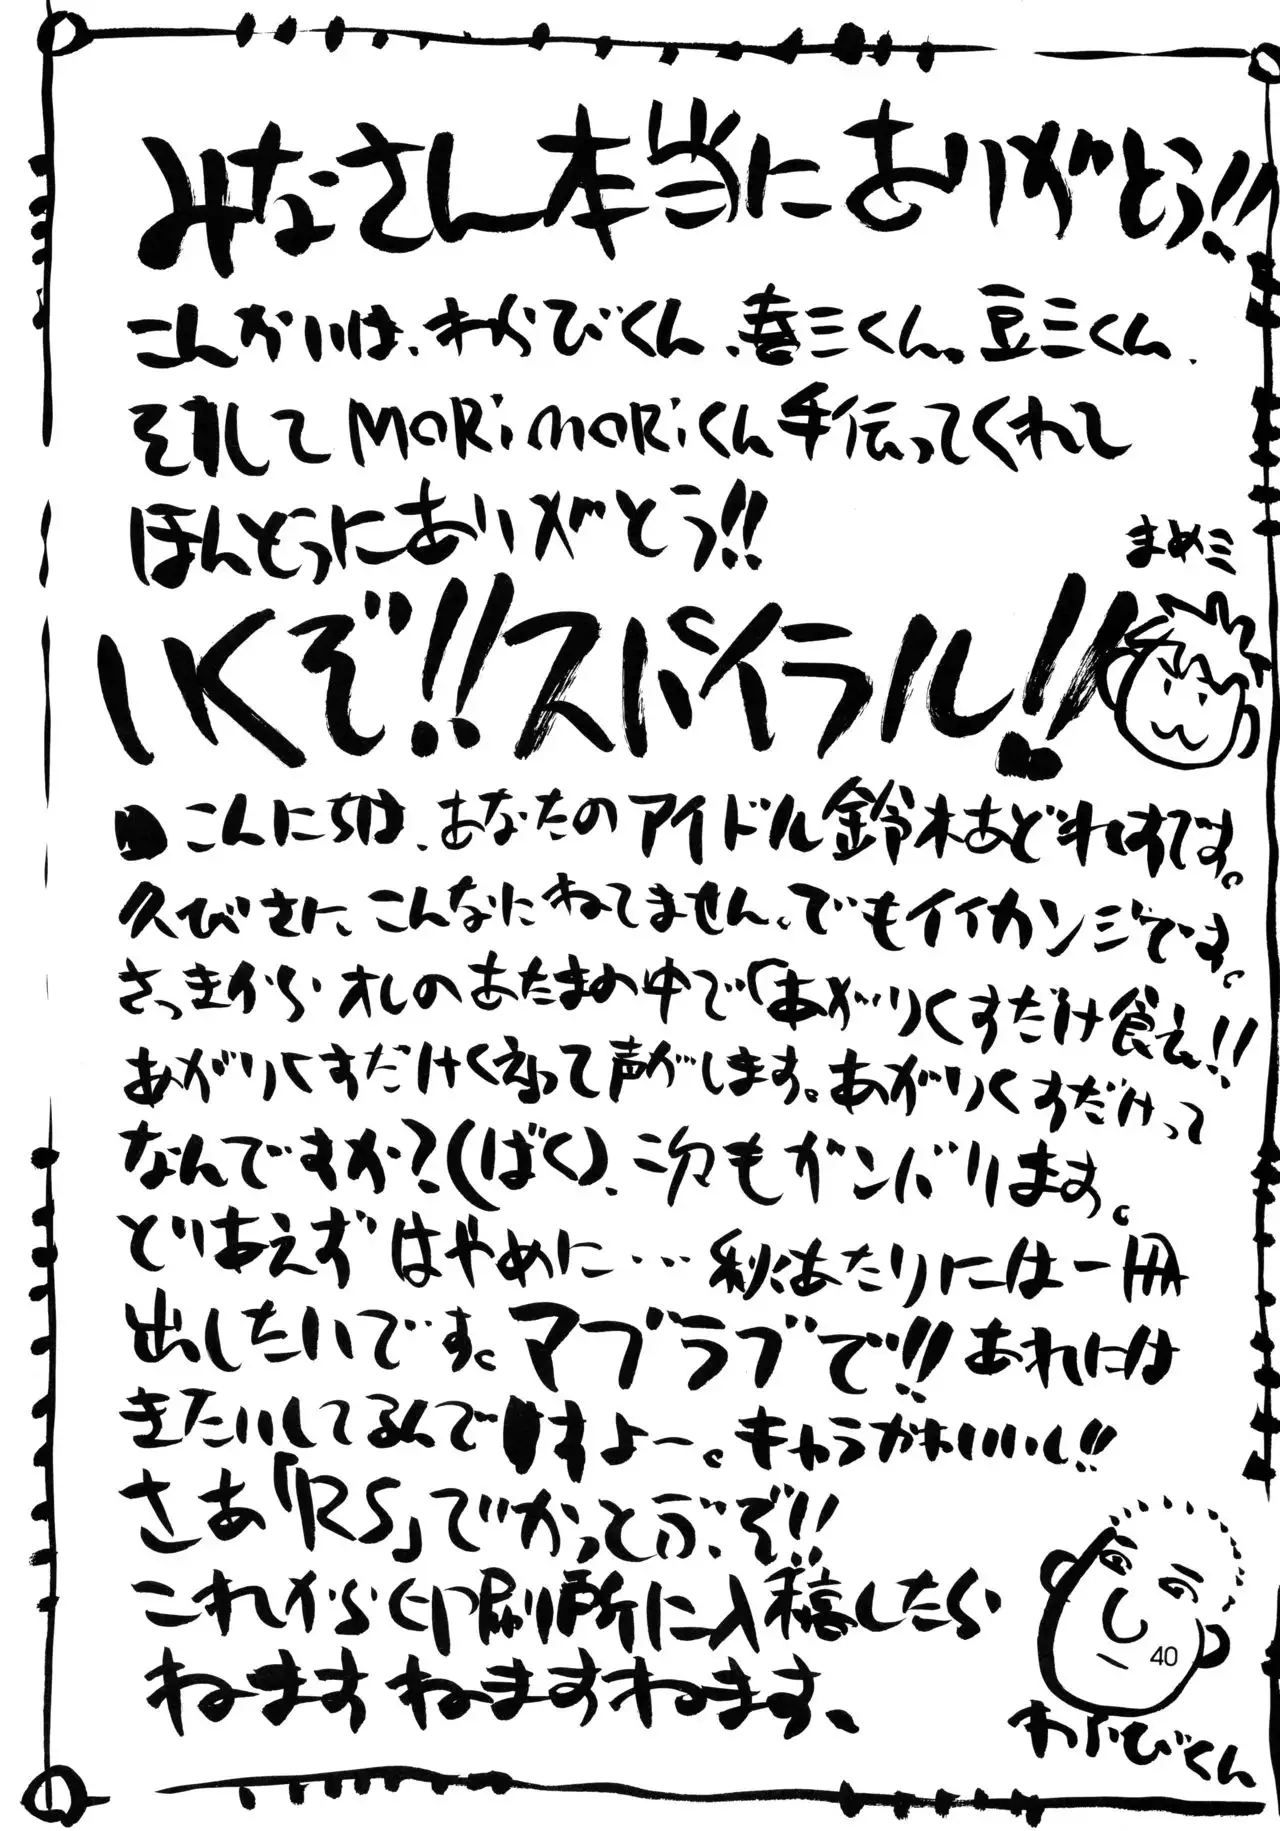 みなさん本当にありがとう!!
こんかいは、わからびくん、喜三くん。豆三くん、
そしてMORiMORiくん手伝ってくれて
ほんどうにありがとう!!
まめミ
いくぞ!!スパイラル!!
こんにちは、あなたのアイドル鈴木あどれすです。
久びさに、こんなにねてません、でもイイカンジです。
さっきからオレのあたまの中で「あがりくすだけ食え!!
あがりくすだけくえって声がします。あがりくすだけって
なんですか?(ばく)、次々もガンバリます。
とりあえずはやめに…秋あたりには一冊
出したいです。マブラブで!!あれには
きたいしてるんですよー。キャラかわいいし!!
さあ「RS」でかっとぶぞ!!
これから印刷所に入稿したら
ねますねますねます、
40
わらびくん